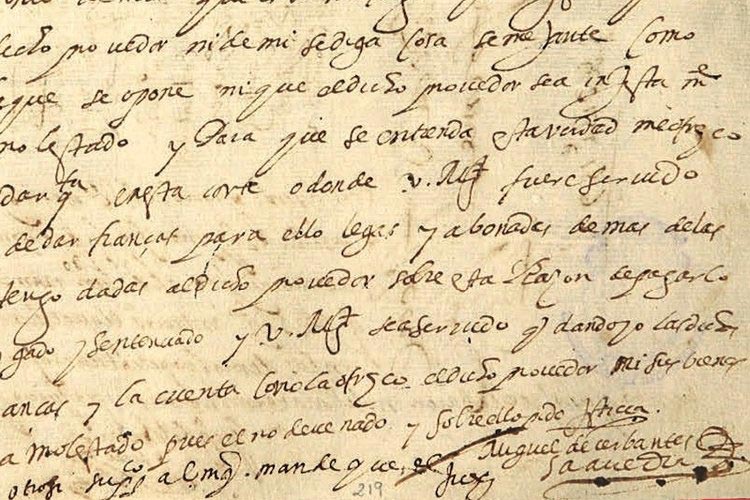 dicho provedor ni de mi se diga cosa semejante como
que se opone ni que el dicho provedor sea injusta me
molestado y para que se entienda esta verdad me ofrezco
dar en esta corte o donde v. Mgt fuere servido
de dar fianças para ello legas y abonadas de mas de las
tengo dadas al dicho provedor sobre esta Razon de pagar lo
gado y sentenciado y v. Mgt sea servido q dando yo las dichas
ancas y la cuenta como la ofrezco el dicho provedor ni sus bienes
a molestado pues el no deve nada y sobre ello pdo justicia.
otrosi sup co al mg. mande que el Juez
Miguel de cerbantes
saavedra
219